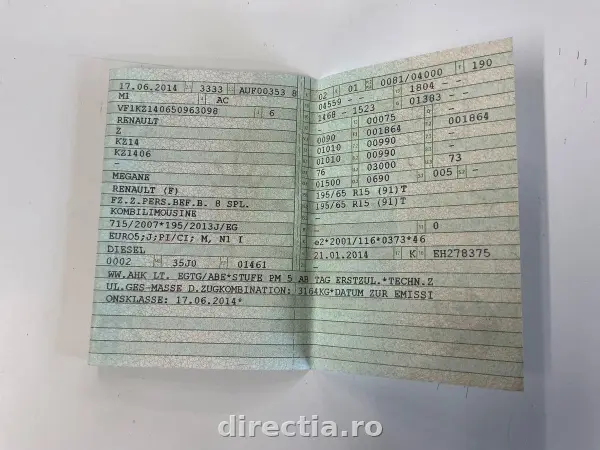 17.06.2014 3333 AUF00353 8
M1 AC
VF1KZ140650963098 6
RENAULT
Z
KZ14
KZ1406
MEGANE
RENAULT (F)
FZ.Z.PERS.BEF.B. 8 SPL.
KOMBILIMOUSINE
715/2007*195/2013J/EG
EURO5;J;PI/CI; M, N1 I
DIESEL
0002 35J0 01461
02 01 0081/04000 190
04559 - 1804 - -
1468 - 1523 01383 - -
- 00075 -
0090 001864 001864
01010 00990 -
01010 00990 -
76 03000 73
01500 0690 005 - -
195/65 R15 (91)T
195/65 R15 (91)T
-
- 0
e2*2001/116*0373*46
21.01.2014 K EH278375
WW.AHK LT. EGTG/ABE*STUFE PM 5 AB TAG ERSTZUL.*TECHN.Z
UL.GES-MASSE D.ZUGKOMBINATION: 3164KG*DATUM ZUR EMISSI
ONSKLASSE: 17.06.2014*
directia.ro